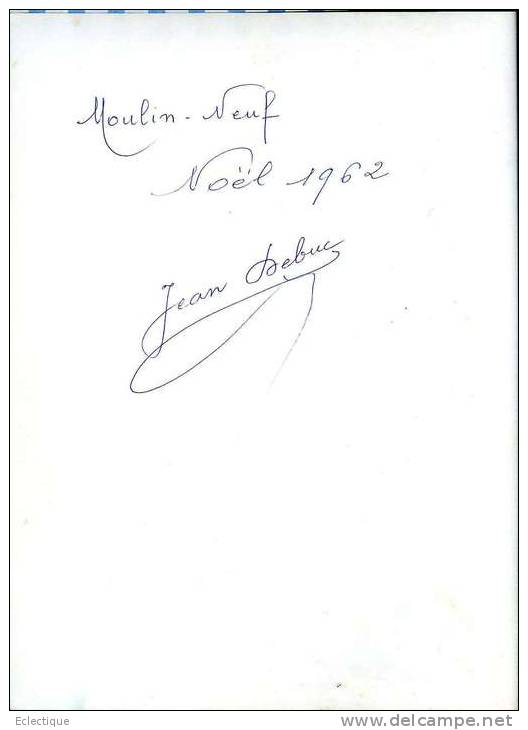 Moulin-Neuf
Noël 1962
Jean Debuc
Eclectique
delcampe.net